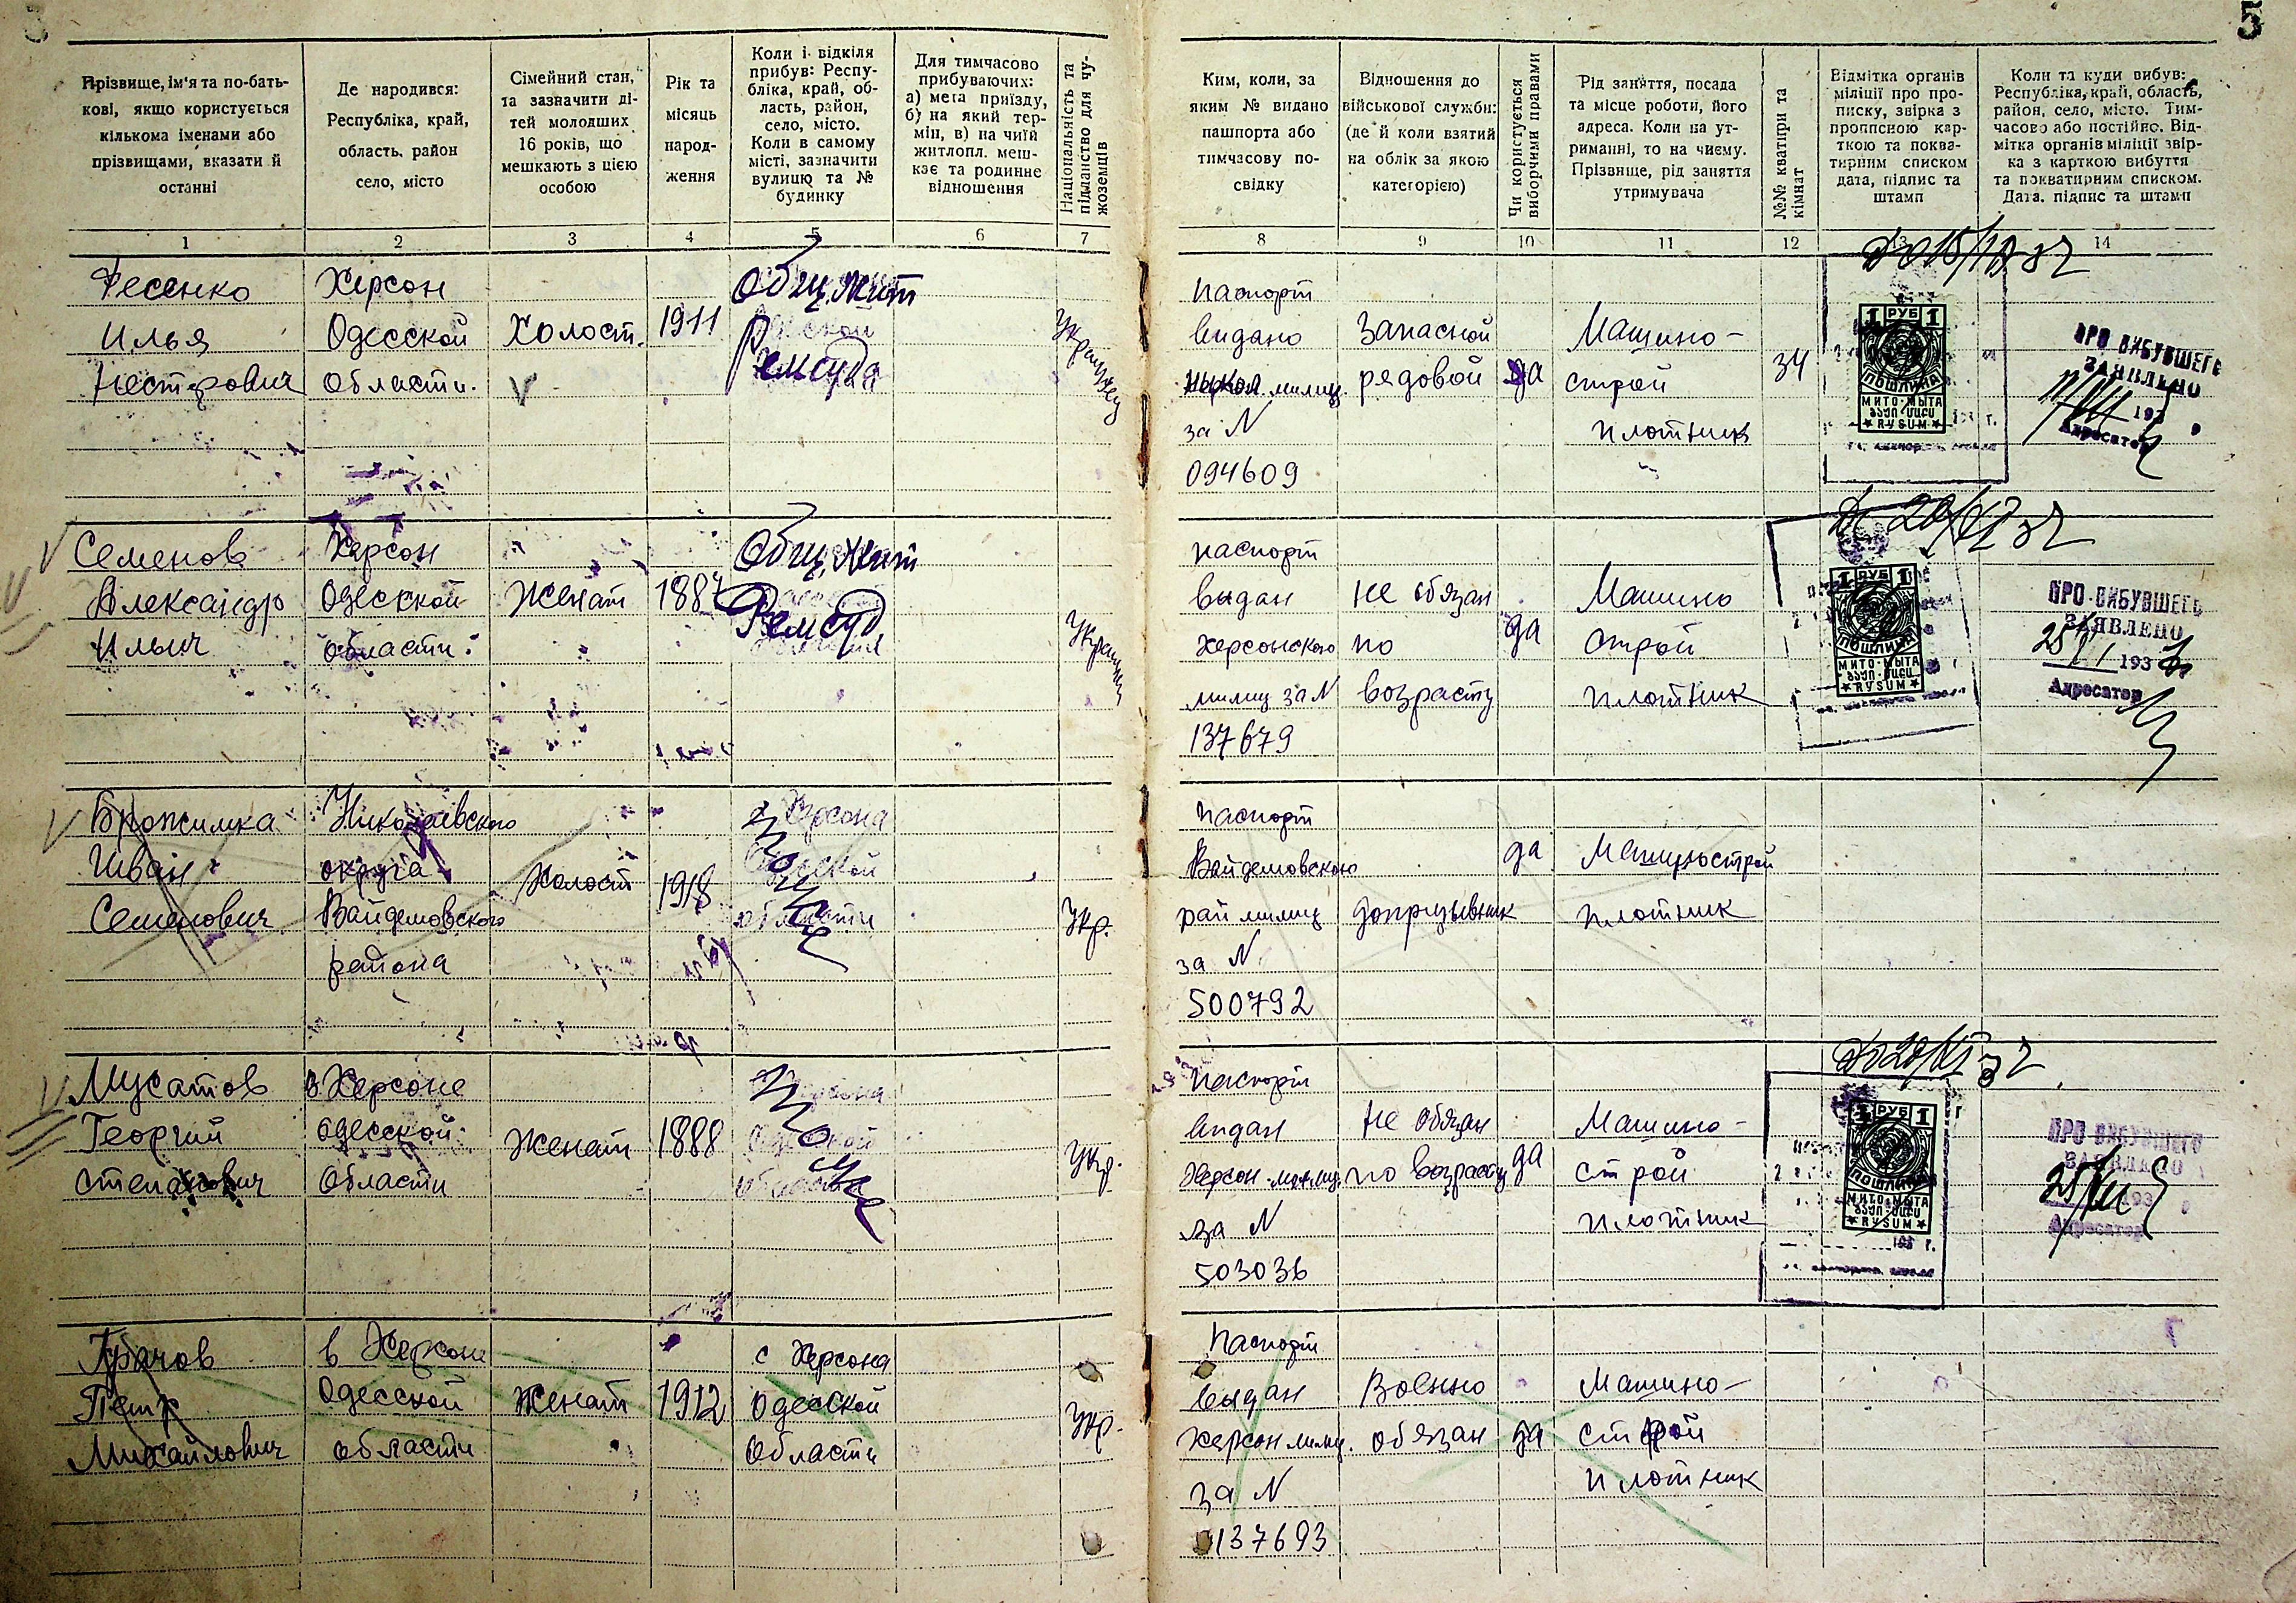 5
Прізвище, ім'я та по-бать-
кові, якщо користується
кількома іменами або
прізвищами, вказати й
останні
Де народився:
Республіка, край,
область, район
село, місто
Сімейний стан,
та зазначити ді-
тей молодших
16 років, що
мешкають з цією
особою
Рік та
місяць
народ-
ження
Коли і відкіля
прибув: Респу-
бліка, край, об-
ласть, район,
село, місто.
Коли в самому
місті, зазначити
вулицю та №
будинку
Для тимчасово
прибуваючих:
а) мета приїзду,
б) на який тер-
мін, в) на чиїй
житлопл. меш-
кає та родинне
відношення
Національність та
підданство для чу-
жоземців
Ким, коли, за
яким № видано
пашпорта або
тимчасову по-
свідку
Відношення до
військової служби:
(де й коли взятий
на облік за якою
категорією)
Чи користується
виборчими правами
Рід заняття, посада
та місце роботи, його
адреса. Коли на ут-
риманні, то на чиєму.
Прізвище, рід заняття
утримувача
№№ квартири та
кімнат
Відмітка органів
міліції про про-
писку, звірка з
прописною кар-
ткою та поква-
тирним списком
дата, підпис та
штамп
Коли та куди вибув:
Республіка, край, область,
район, село, місто. Тим-
часово або постійно. Від-
мітка органів міліції звір-
ка з карткою вибуття
та покватирним списком.
Дата, підпис та штамп
1 2 3 4 5 6 7 8 9 10 11 12 13 14
Фесенко
Илья
Нестерович
Херсон
Одесской
Области.
Холост.
1911
Общежит
Ремсуда
Украинец
паспорт
видано
милиц.
за N
094609
Запасной
рядовой
да
Машино-
строй
плотник
34
1 РУБ 1
ПОШЛИНА
МИТО·МЫТА
★ RYSUM ★
ПРО ВИБУВШЕГО
ЗАЯВЛЕНО
193
Адресатор
Семенов
Александр
Ильич
Херсон
Одесской
области.
Женат
1887
Общежит
Ремсуд
Украинец
паспорт
выдан
Херсонского
милиц за N
137679
не обязан
по
возрасту
да
Машино
строй
плотник
1 РУБ 1
ПОШЛИНА
МИТО·МЫТА
★ RYSUM ★
ПРО ВИБУВШЕГО
ЗАЯВЛЕНО
193
Адресатор
Иван
Семенович
Николаевского
округа
Вайдемовского
района
Холост
1918
Херсона
Одесской
области
Укр.
паспорт
Вайдемовского
рай милиц
за N
500792
допризывник
да
Машинострой
плотник
Мусатов
Георгий
Степанович
в Херсоне
Одесской
Области
Женат
1888
Укр.
паспорт
выдан
Херсон. милиц.
за N
503036
Не обязан
по возрасту
да
Машино-
строй
плотник
1 РУБ 1
ПОШЛИНА
МИТО·МЫТА
★ RYSUM ★
193 г.
ПРО ВИБУВШЕГО
ЗАЯВЛЕНО
193
Адресатор
Грачов
Петр
Михайлович
в Херсоне
Одесской
области
Женат
1912
с Херсона
Одесской
Области
Укр.
паспорт
выдан
Херсон милиц.
за N
137693
Военно
обязан
да
Машино-
строй
плотник